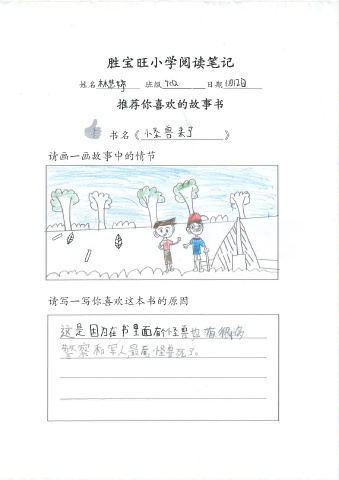 胜宝旺小学阅读笔记
姓名 林慧 班级 日期
推荐你喜欢的故事书
书名《怪兽来了》
请画一画故事中的情节
请写一写你喜欢这本书的原因
这是因为在书里面有怪兽也有很多
警察和军人最后怪兽死了。